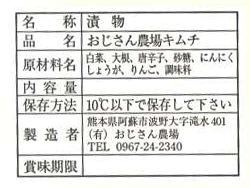 名称 漬物
品名 おじさん農場キムチ
原材料名 白菜、大根、唐辛子、砂糖、にんにく
しょうが、りんご、調味料
内容量
保存方法 10℃以下で保存して下さい
製造者 熊本県阿蘇市波野大字滝水401
(有) おじさん農場
TEL 0967-24-2340
賞味期限